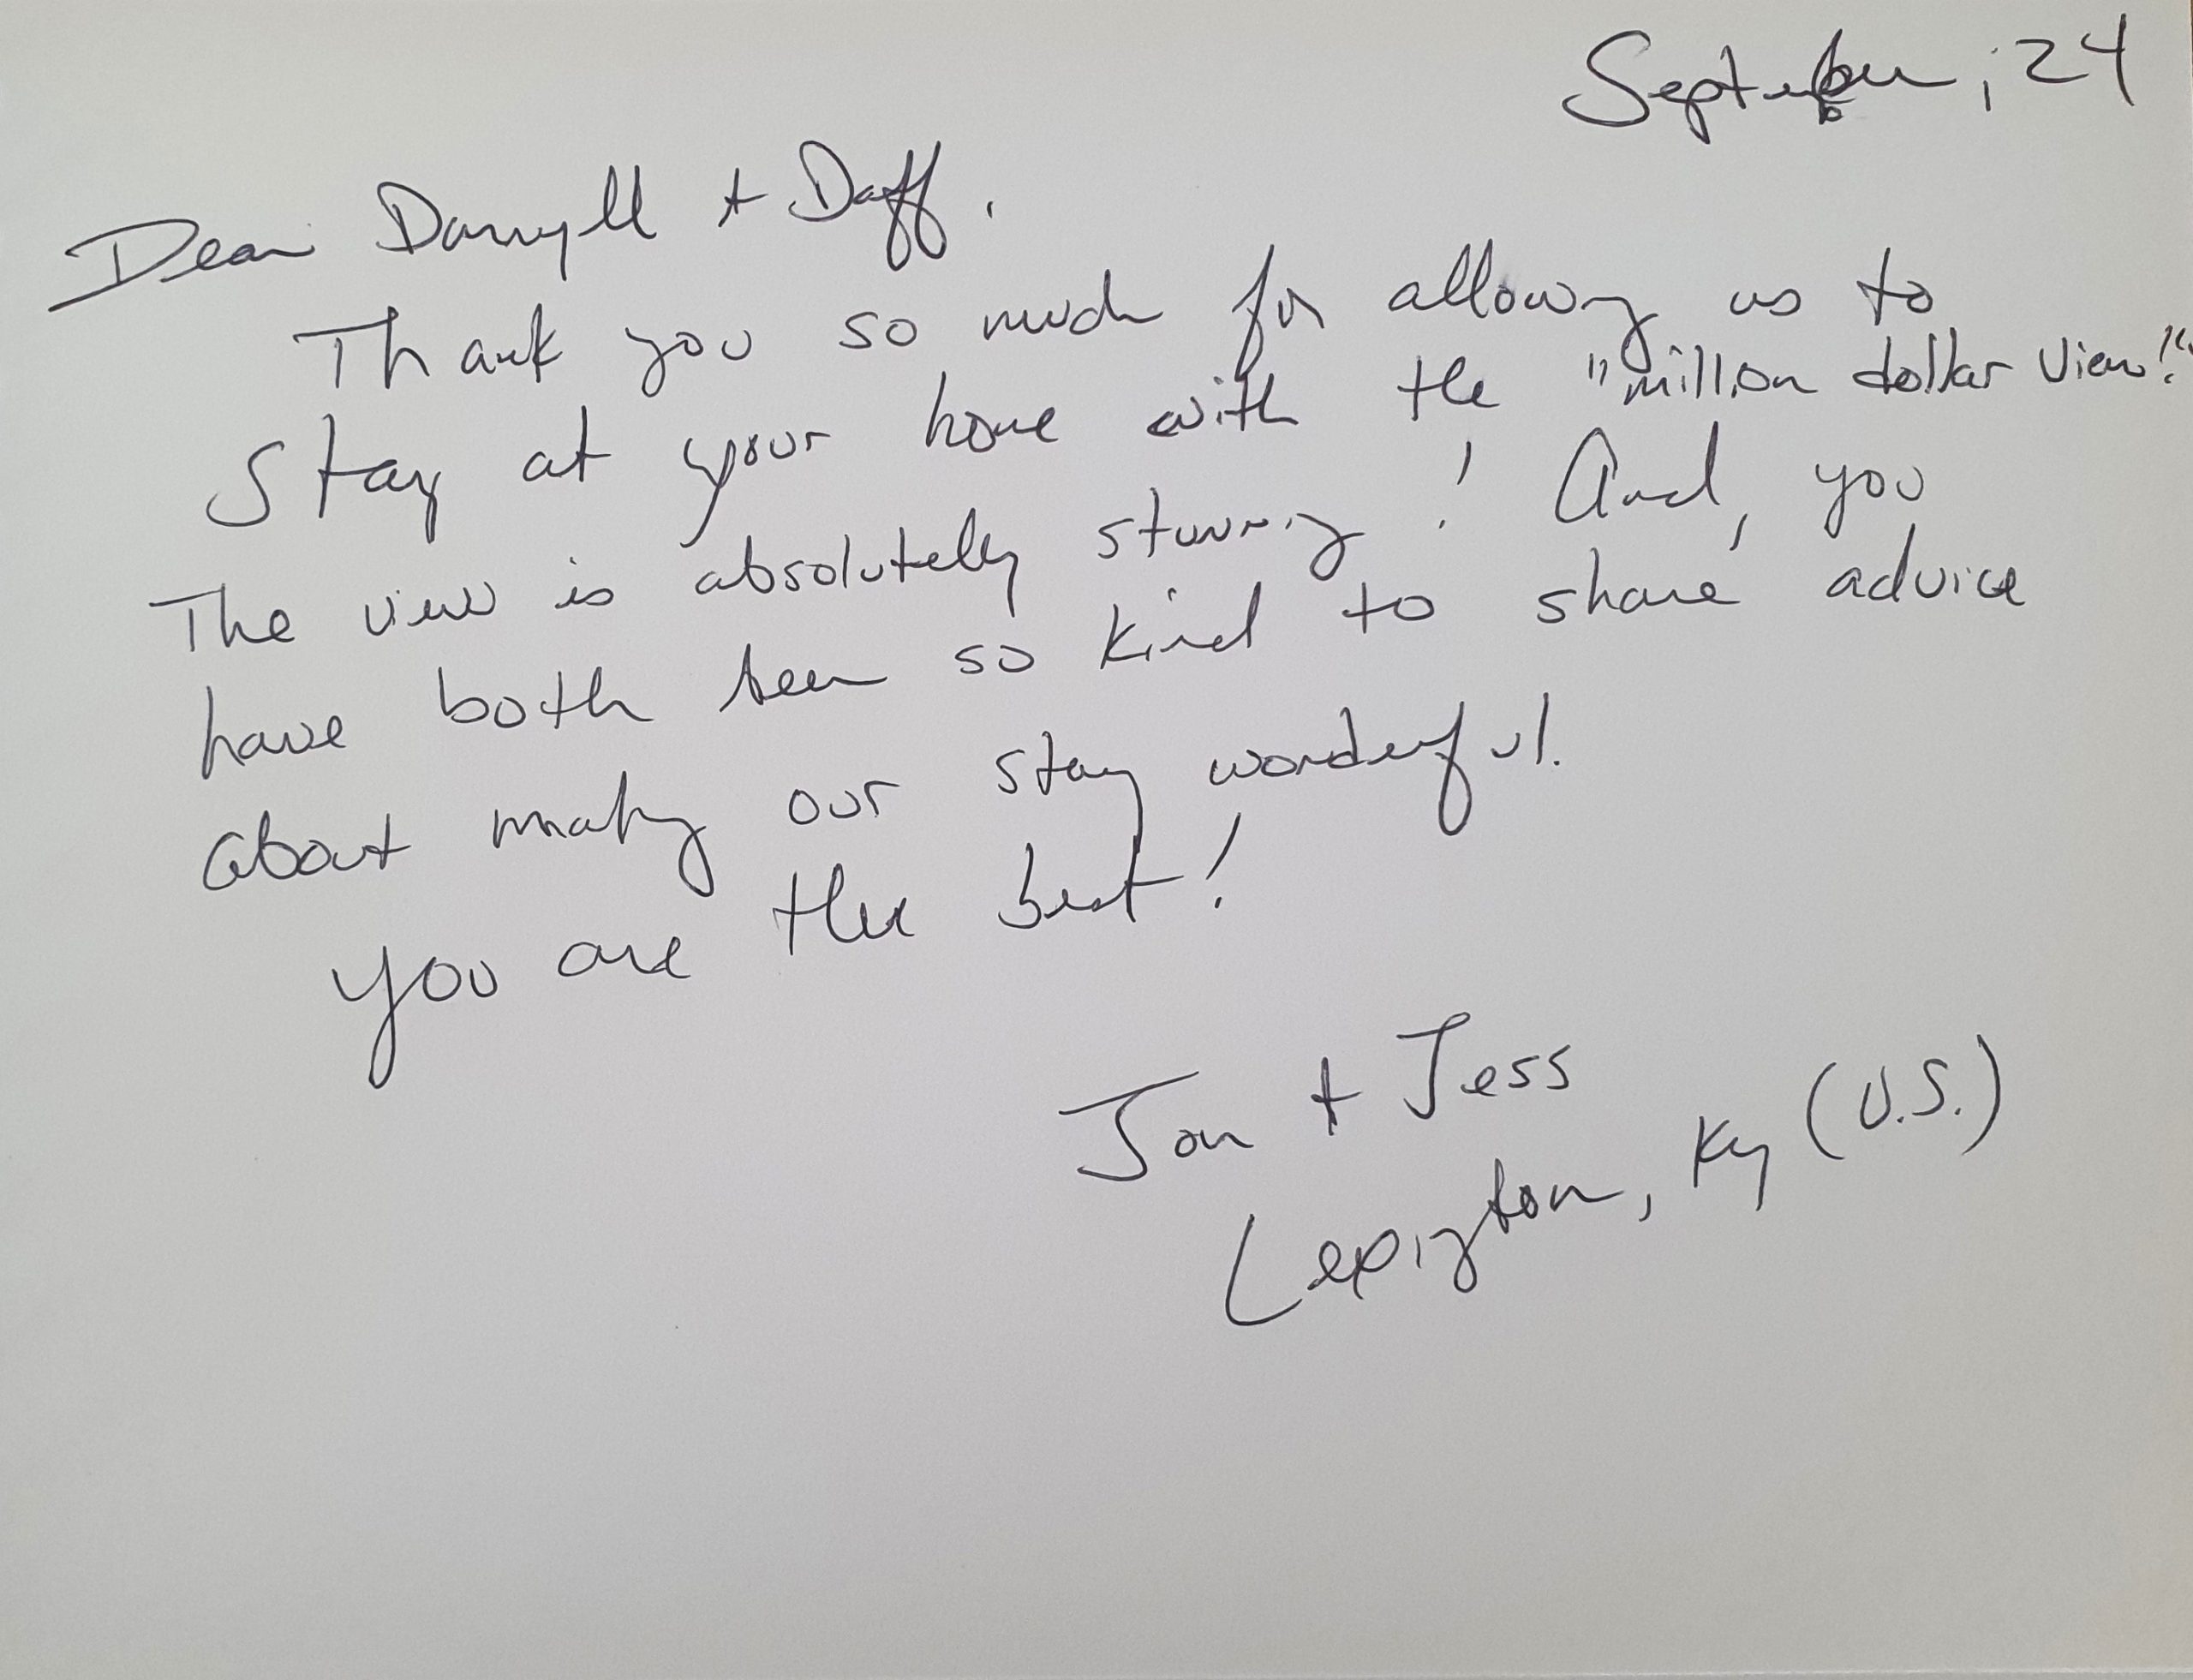 September, 24
Dear Darryll + Daff,
Thank you so much for allowing us to
stay at your home with the "million dollar view!"
The view is absolutely stunning! And, you
have both been so kind to share advice
about making our stay wonderful.
You are the best!
Jon + Jess
Lexington, Ky (U.S.)